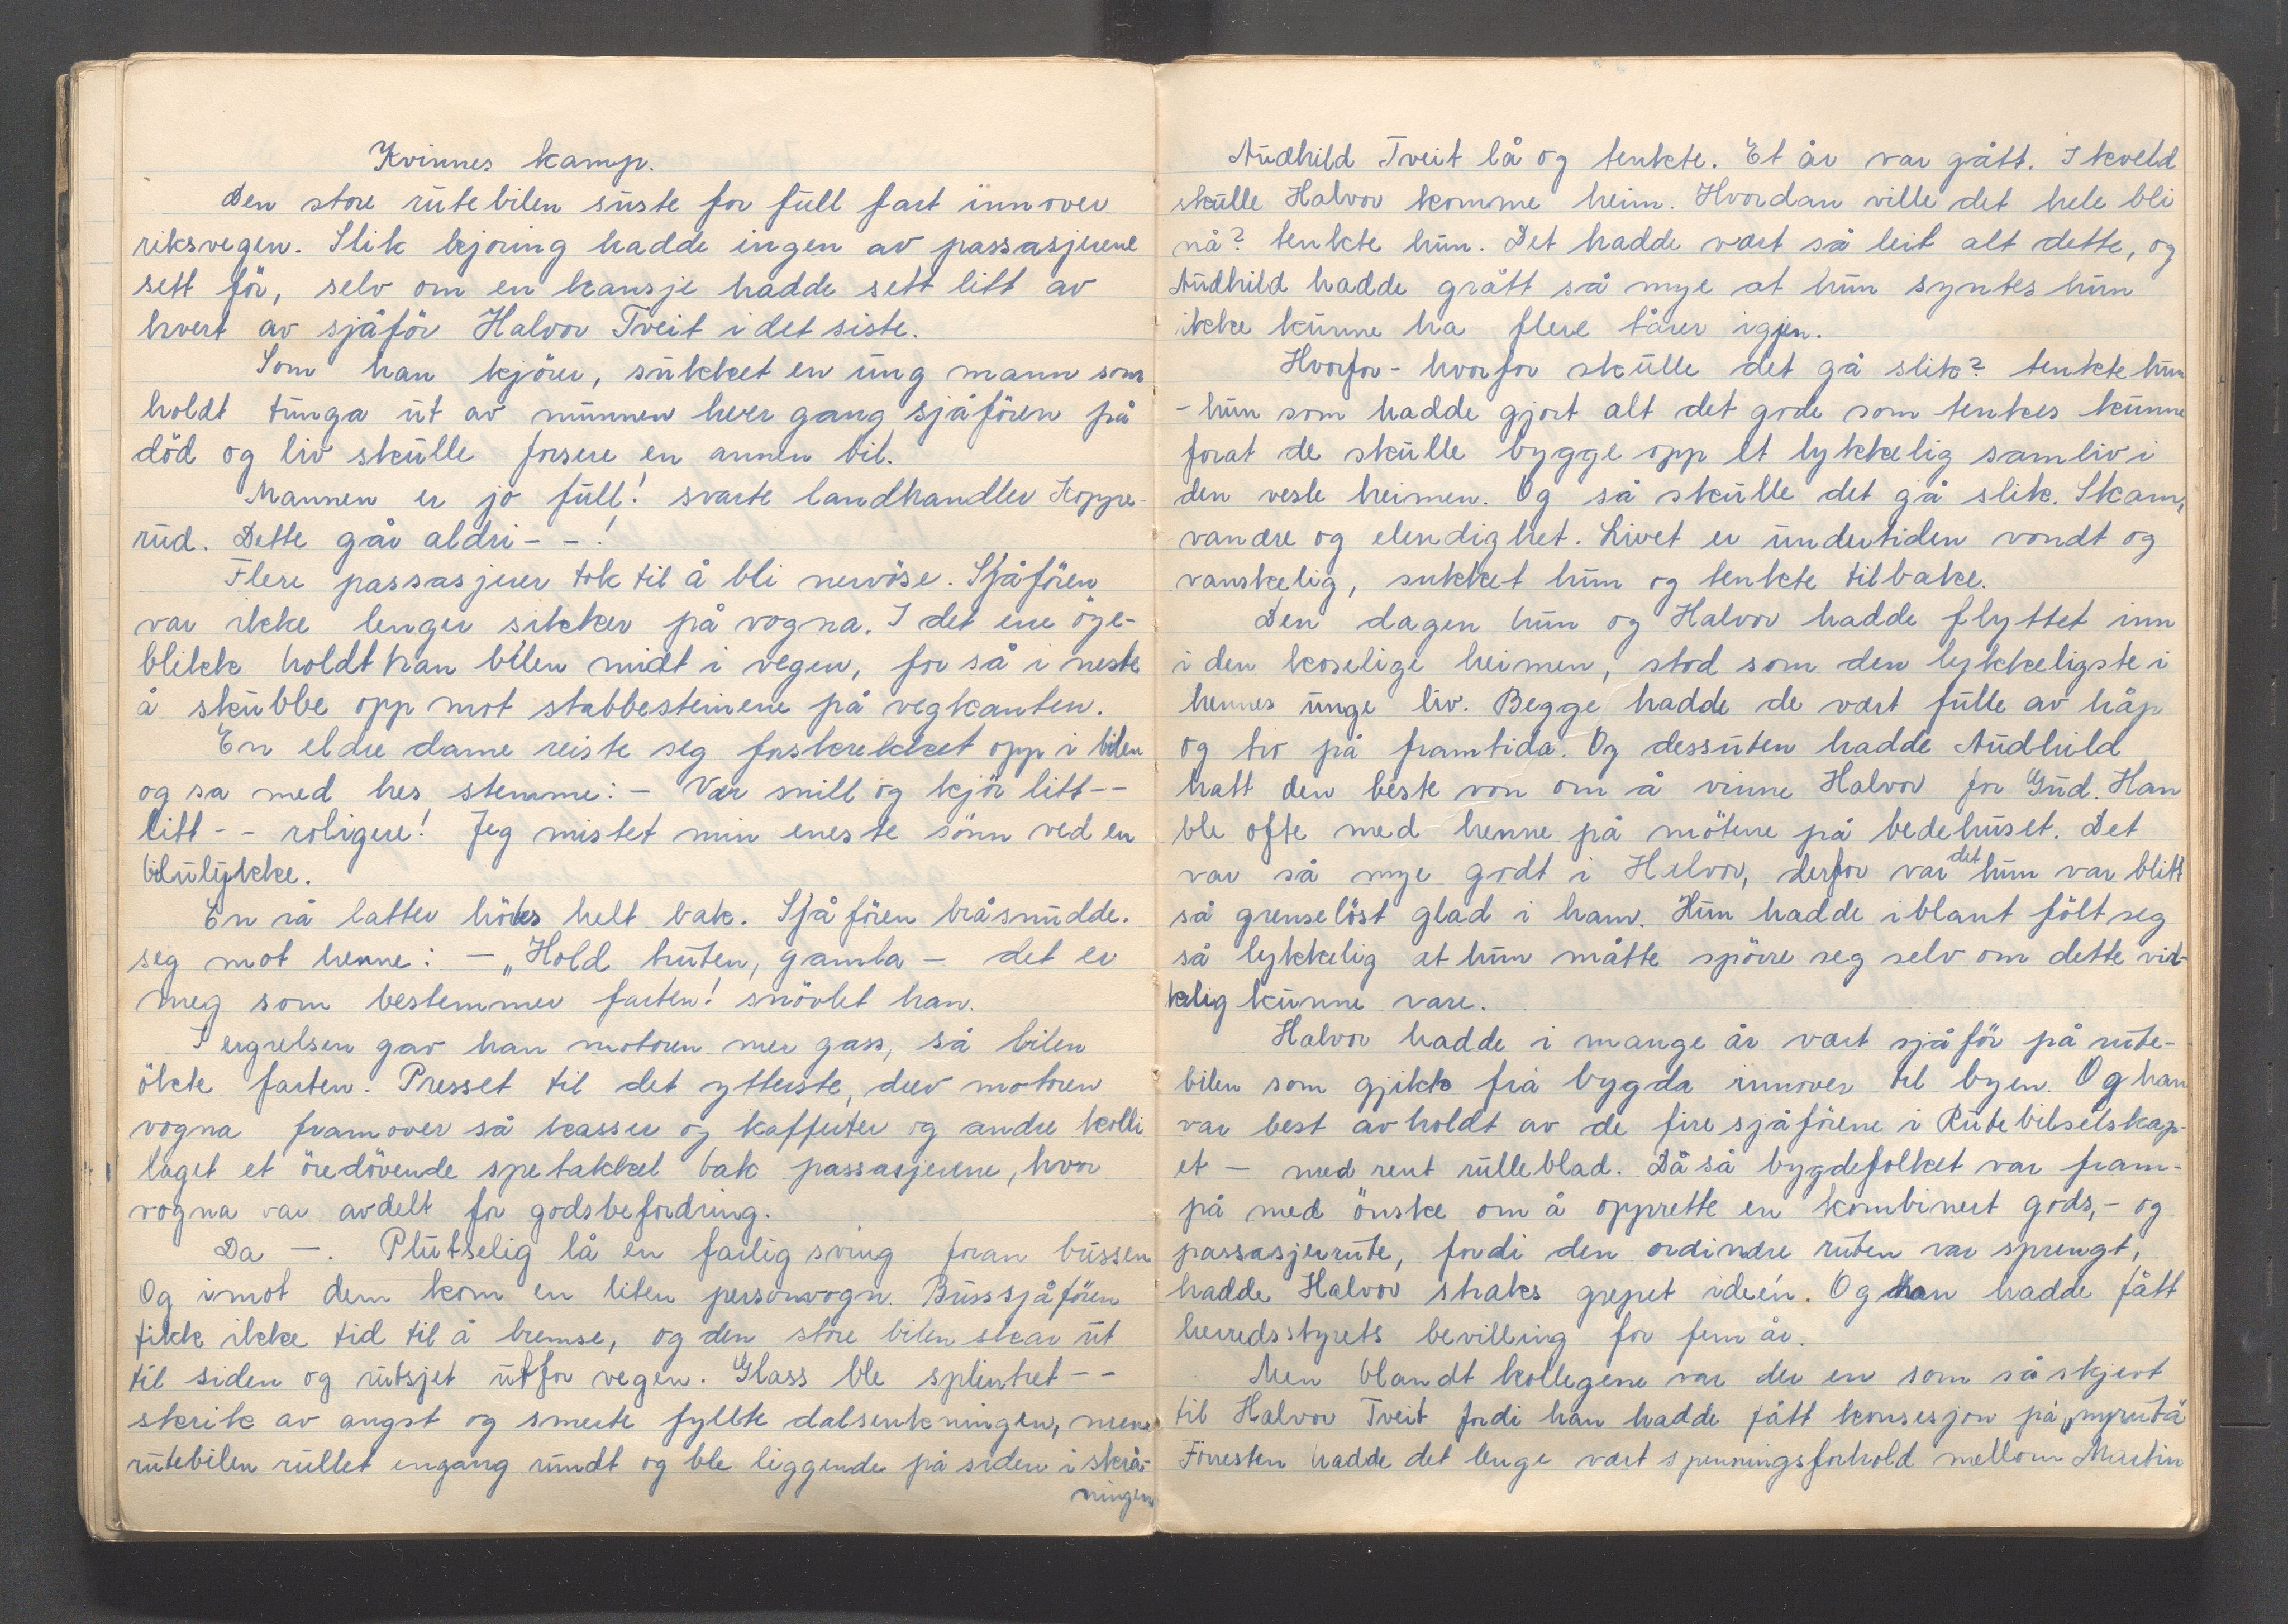 Kvinnes kamp.
Den store rutebilen suste for full fart innover
riksvegen. Slik kjøring hadde ingen av passasjerene
sett för, selv om en kansje hadde sett litt av
hvert av sjåför Halvor Tveit i det siste.
Som han kjörer, sukket en ung mann som
holdt tunga ut av munnen hver gang sjåfören på
död og liv skulle forsere en annen bil.
Mannen er jo full! svarte landhandler Koppe-
rud. Dette går aldri - - !
Flere passasjerer tok til å bli nervöse. Sjåfören
var ikke lenger sikker på vogna. I det ene öge-
blikk holdt han bilen midt i vegen, for så i neste
å skubbe opp mot stabbesteinene på vegkanten.
En eldre dame reiste seg forskrekket opp i bilen
og sa med hes stemme: - Vær snill og kjör litt --
litt -- roligere! Jeg mistet min eneste sönn ved en
bilulykke.
En rå latter hörtes helt bak. Sjåfören bråsnudde.
seg mot henne: - „Hold truten, gamla - det er
meg som bestemmer farten! snövlet han.
I ergrelsen gav han motoren mer gass, så bilen
ökte farten. Presset til det ytterste, drev motoren
vogna framover så kasser og kofferter og andre kolli
laget et öredövende spetakkel bak passasjerene, hvor
vogna var avdelt for godsbefordring.
Da -. Plutselig lå en farlig sving foran bussen
Og imot dem kom en liten personvogn. Bussjåfören
fikk ikke tid til å bremse, og den store bilen skar ut
til siden og rutsjet utfor vegen. Glass ble splintret --
skrik av angst og smerte fyllte dalsenkningen, mens
rutebilen rullet engang rundt og ble liggende på siden i skrå-
ningen
Audhild Tveit lå og tenkte. Et år var gått. I kveld
skulle Halvor komme heim. Hvordan ville det hele bli
nå? tenkte hun. Det hadde vært så leit alt dette, og
Audhild hadde grått så mye at hun syntes hun
ikke kunne ha flere tårer igjen.
Hvorfor - hvorfor skulle det gå slik? tenkte hun
- hun som hadde gjort alt det gode som tenkes kunne
forat de skulle bygge opp et lykkelig samliv i
den vesle heimen. Og så skulle det gå slik. Skam,
vanære og elendighet. Livet er undertiden vondt og
vanskelig, sukket hun og tenkte tilbake.
Den dagen hun og Halvor hadde flyttet inn
i den koselige heimen, stod som den lykkeligste i
hennes unge liv. Begge hadde de vært fulle av håp
og tro på framtida. Og dessuten hadde Audhild
hatt den beste von om å vinne Halvor for Gud. Han
ble ofte med henne på mötene på bedehuset. Det
var så mye godt i Halvor, derfor var det hun var blitt
så grenselöst glad i ham. Hun hadde iblant fölt seg
så lykkelig at hun måtte spörre seg selv om dette vir-
kelig kunne vare.
Halvor hadde i mange år vært sjåför på rute-
bilen som gjikk frå bygda innover til byen. Og han
var best avholdt av de fire sjåförene i Rutebilselskap-
et - med rent rulleblad. Då så bygdefolket var fram-
på med önske om å opprette en kombinert gods,- og
passasjerrute, fordi den ordinære ruten var sprengt,
hadde Halvor straks grepet ideén. Og han hadde fått
herredsstyrets bevilling for fem år.
Men blandt kollegene var der en som så skjevt
til Halvor Tveit fordi han hadde fått konsesjon på „nyruta"
Förresten hadde det lenge vært spenningsforhold mellom Martin